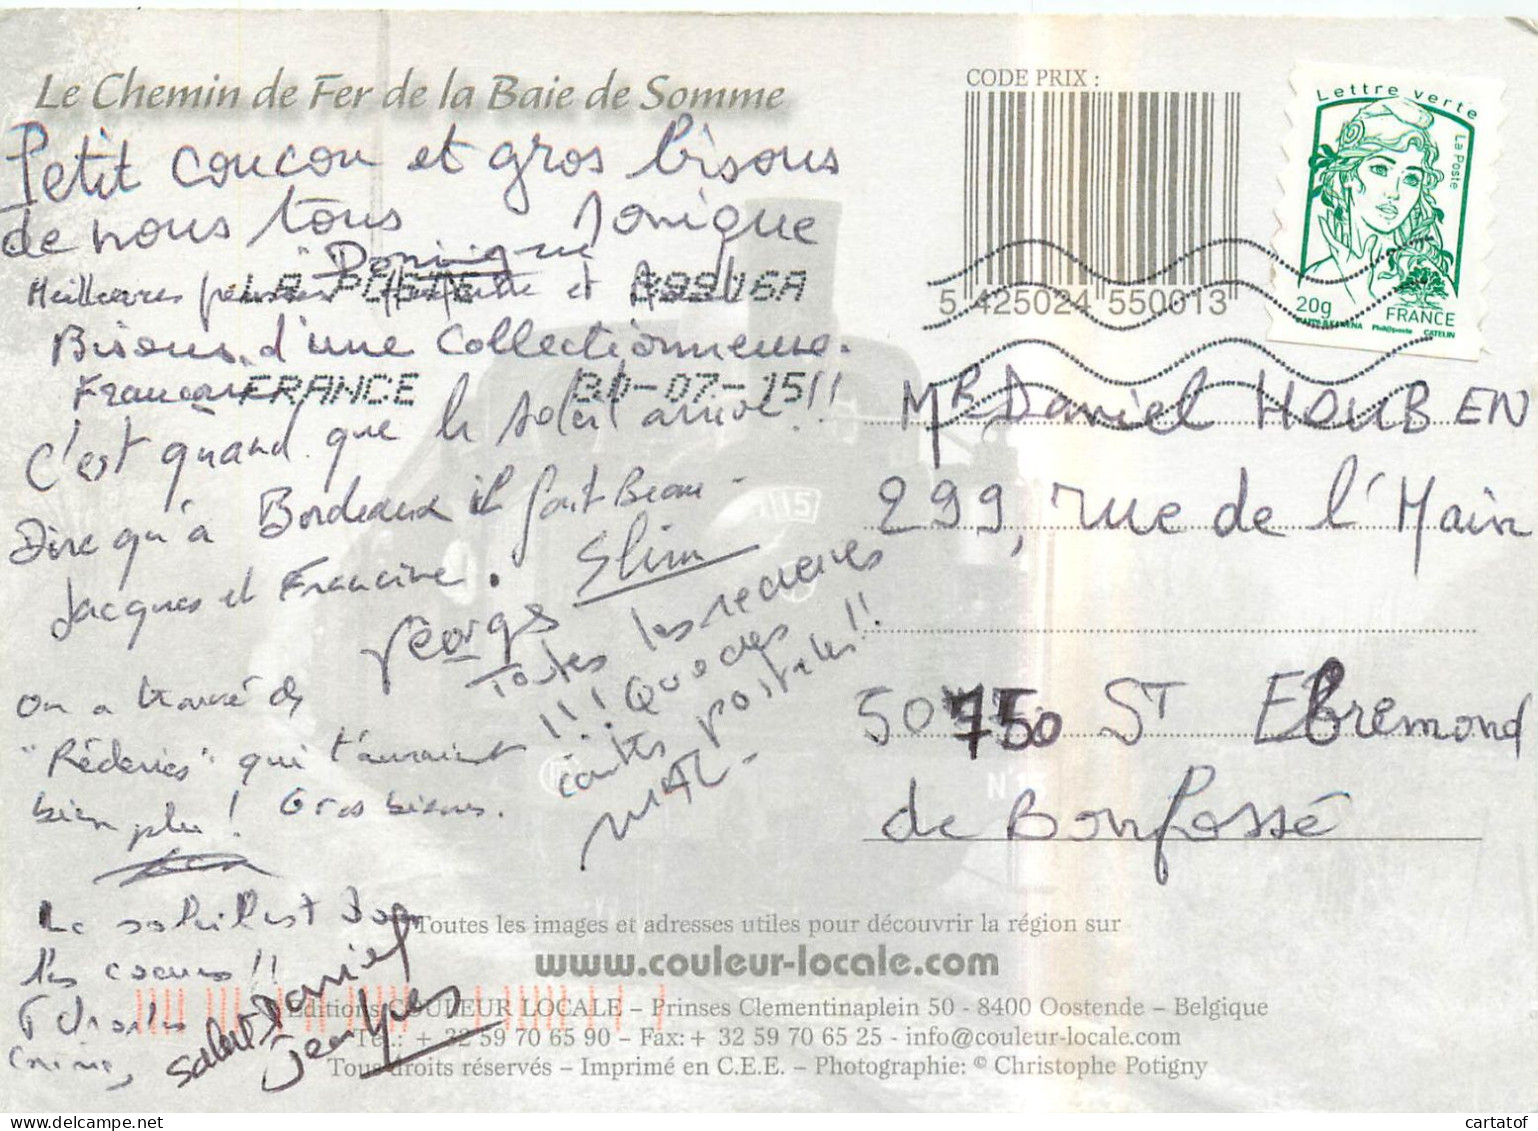 Le Chemin de Fer de la Baie de Somme
Petit coucou et gros bisous
de nous tous Monique
Dominique
Meilleures pensées et
LA POSTE 39916A
Bisous d'une Collectionneuse.
Françoise
FRANCE 30-07-15
C'est quand que le soleil arrive !!
Dire qu'à Bordeaux il fait Beau -
Jacques et Francine.
Slim
Georges
Toutes les
!!! Que des
cartes postales !!
On a trouvé des
"Réderies" qui t'auraient
bien plu ! Gros bisous.
Le soleil est dans
les coeurs !!
Salut Daniel
Jean Yves
CODE PRIX :
5 425024 550013
Lettre verte
La Poste
20g
FRANCE
Phil@poste
Mr Daniel HOUBEN
299, rue de l'Main
50750 St Ebremond
de Bonfossé
115
N°15
Toutes les images et adresses utiles pour découvrir la région sur
www.couleur-locale.com
Editions COULEUR LOCALE – Prinses Clementinaplein 50 - 8400 Oostende – Belgique
Tél.: + 32 59 70 65 90 – Fax: + 32 59 70 65 25 - info@couleur-locale.com
Tous droits réservés – Imprimé en C.E.E. – Photographie: © Christophe Potigny
cartatof